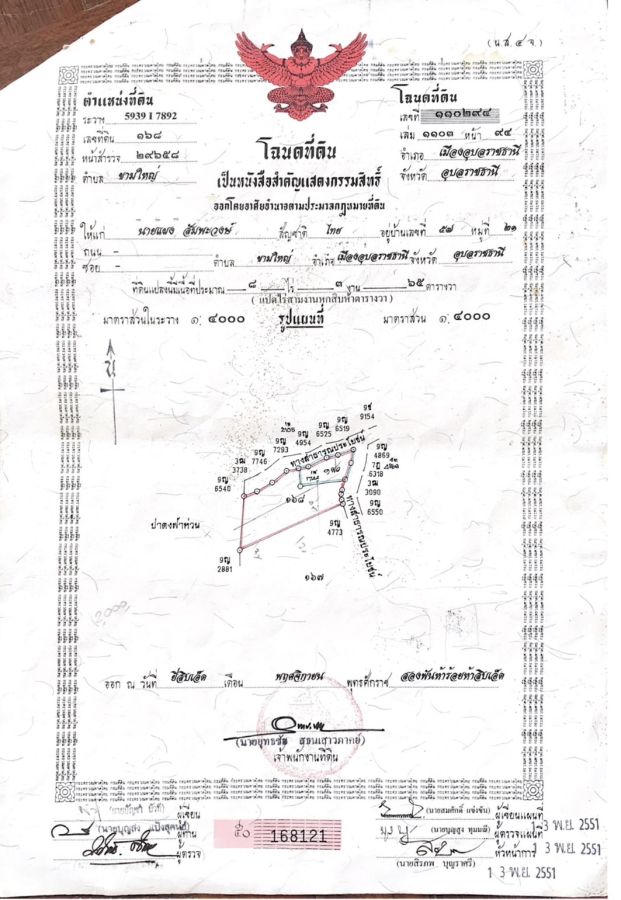 (น.ส. ๔ จ.)
ตำแหน่งที่ดิน
ระวาง 5939 I 7892
เลขที่ดิน ๑๖๘
หน้าสำรวจ ๒๙๖๕๘
ตำบล ขามใหญ่
โฉนดที่ดิน
เลขที่ ๑๑๐๒๙๔
เล่ม ๑๑๐๓ หน้า ๙๔
อำเภอ เมืองอุบลราชธานี
จังหวัด อุบลราชธานี
โฉนดที่ดิน
เป็นหนังสือสำคัญแสดงกรรมสิทธิ์
ออกโดยอาศัยอำนาจตามประมวลกฎหมายที่ดิน
ให้แก่ นายแผง สัมพะวงษ์ สัญชาติ ไทย อยู่บ้านเลขที่ ๕๗ หมู่ที่ ๒๑
ถนน - ตำบล ขามใหญ่ อำเภอ เมืองอุบลราชธานี จังหวัด อุบลราชธานี
ซอย -
ที่ดินแปลงนี้มีเนื้อที่ประมาณ ๘ ไร่ ๓ งาน ๖๕ ตารางวา
( แปดไร่สามงานหกสิบห้าตารางวา )
มาตราส่วนในระวาง ๑: ๔๐๐๐ รูปแผนที่ มาตราส่วน ๑: ๔๐๐๐
น
9ช
9154
9ญ
6519
9ญ
6525
9ญ
4954
9ญ
7293
9ญ
7746
3ฒ
3738
9ญ
6540
ทางสาธารณประโยชน์
9ญ
4869
6318
3ฒ
3090
9ญ
6550
๑๖๘
ป่าดงฟ้าห่วน
ทางสาธารณประโยชน์
9ญ
4773
9ญ
2881
๑๖๗
ออก ณ วันที่ ยี่สิบเอ็ด เดือน พฤศจิกายน พุทธศักราช สองพันห้าร้อยห้าสิบเอ็ด
เจ้าพนักงานที่ดิน
ผู้เขียน
(นายบุญสง
ผู้ทาน
ผู้ตรวจ
168121
(นายสมศักดิ์ แข่งขัน) ผู้เขียนแผนที่
(นายบุญสูง ทุมมณี) ผู้ตรวจแผนที่
1 3 พ.ย. 2551
หัวหน้าการ 1 3 พ.ย. 2551
(นายสิรภพ บุญราศรี)
1 3 พ.ย. 2551